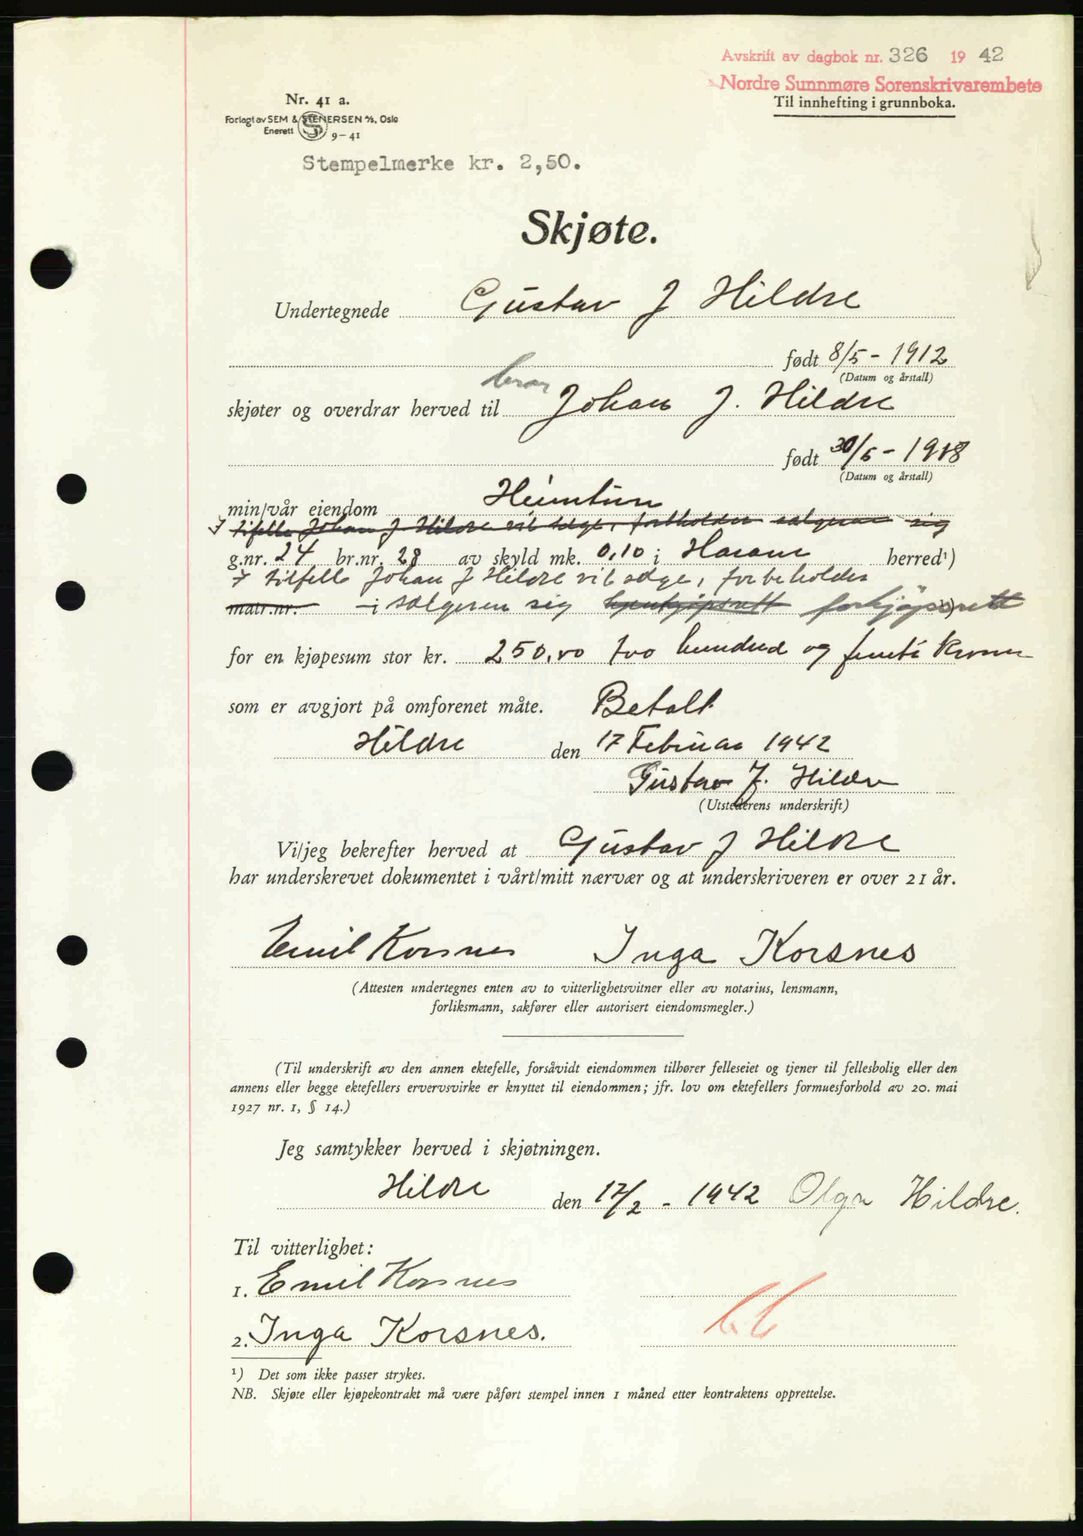 Avskrift av dagbok nr. 326 1942
Nordre Sunnmøre Sorenskrivarembete
Til innhefting i grunnboka.
Nr. 41 a.
Forlagt av SEM & STENERSEN A/S, Oslo
Enerett S 9-41
Stempelmerke kr. 2,50.
Skjøte.
Undertegnede Gustav J Hildre
født 8/5 - 1912
(Datum og årstall)
bror
skjøter og overdrar herved til Johan J. Hildre
født 30/5 - 1918
(Datum og årstall)
min/vår eiendom Heimtun
I tilfelle Johan J Hildre vil selge, forbeholder selgeren sig
g.nr. 24 br.nr. 28 av skyld mk. 0,10 i Haram herred¹)
I tilfelle Johan J Hildre vil selge, forbeholder
matr.nr. - i sælgeren sig forkjøpsrett
for en kjøpesum stor kr. 250,00 two hundred og femti Kroner
som er avgjort på omforenet måte. Betalt
Hildre den 17 Februar 1942
Gustav J. Hildre
(Utstederens underskrift)
Vi/jeg bekrefter herved at Gustav J Hildre
har underskrevet dokumentet i vårt/mitt nærvær og at underskriveren er over 21 år.
Emil Korsnes Inga Korsnes
(Attesten undertegnes enten av to vitterlighetsvitner eller av notarius, lensmann,
forliksmann, sakfører eller autorisert eiendomsmegler.)
(Til underskrift av den annen ektefelle, forsåvidt eiendommen tilhører felleseiet og tjener til fellesbolig eller den
annens eller begge ektefellers ervervsvirke er knyttet til eiendommen; jfr. lov om ektefellers formuesforhold av 20. mai
1927 nr. 1, § 14.)
Jeg samtykker herved i skjøtningen.
Hildre den 17/2 - 1942 Olga Hildre.
Til vitterlighet:
1. Emil Korsnes
2. Inga Korsnes.
¹) Det som ikke passer strykes.
NB. Skjøte eller kjøpekontrakt må være påført stempel innen 1 måned etter kontraktens opprettelse.